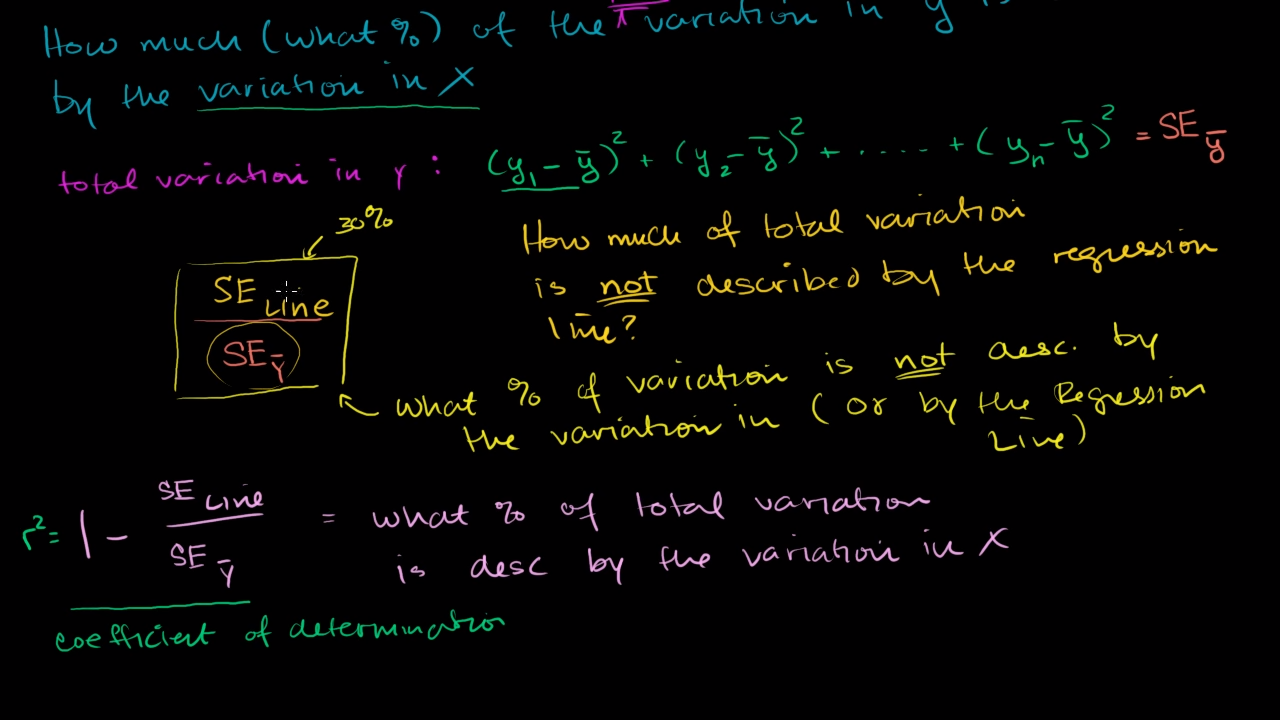 How much (what %) of the variation in y is
by the variation in x
total variation in Y : (y₁ - ȳ)² + (y₂ - ȳ)² + ..... + (yₙ - ȳ)² = SE ȳ
30%
SE Line
SE Ȳ
How much of total variation
is not described by the regression
line?
what % of variation is not desc. by
the variation in (or by the Regression
Line)
r² = 1 - SE Line / SE Ȳ = what % of total variation
is desc by the variation in x
coefficient of determination